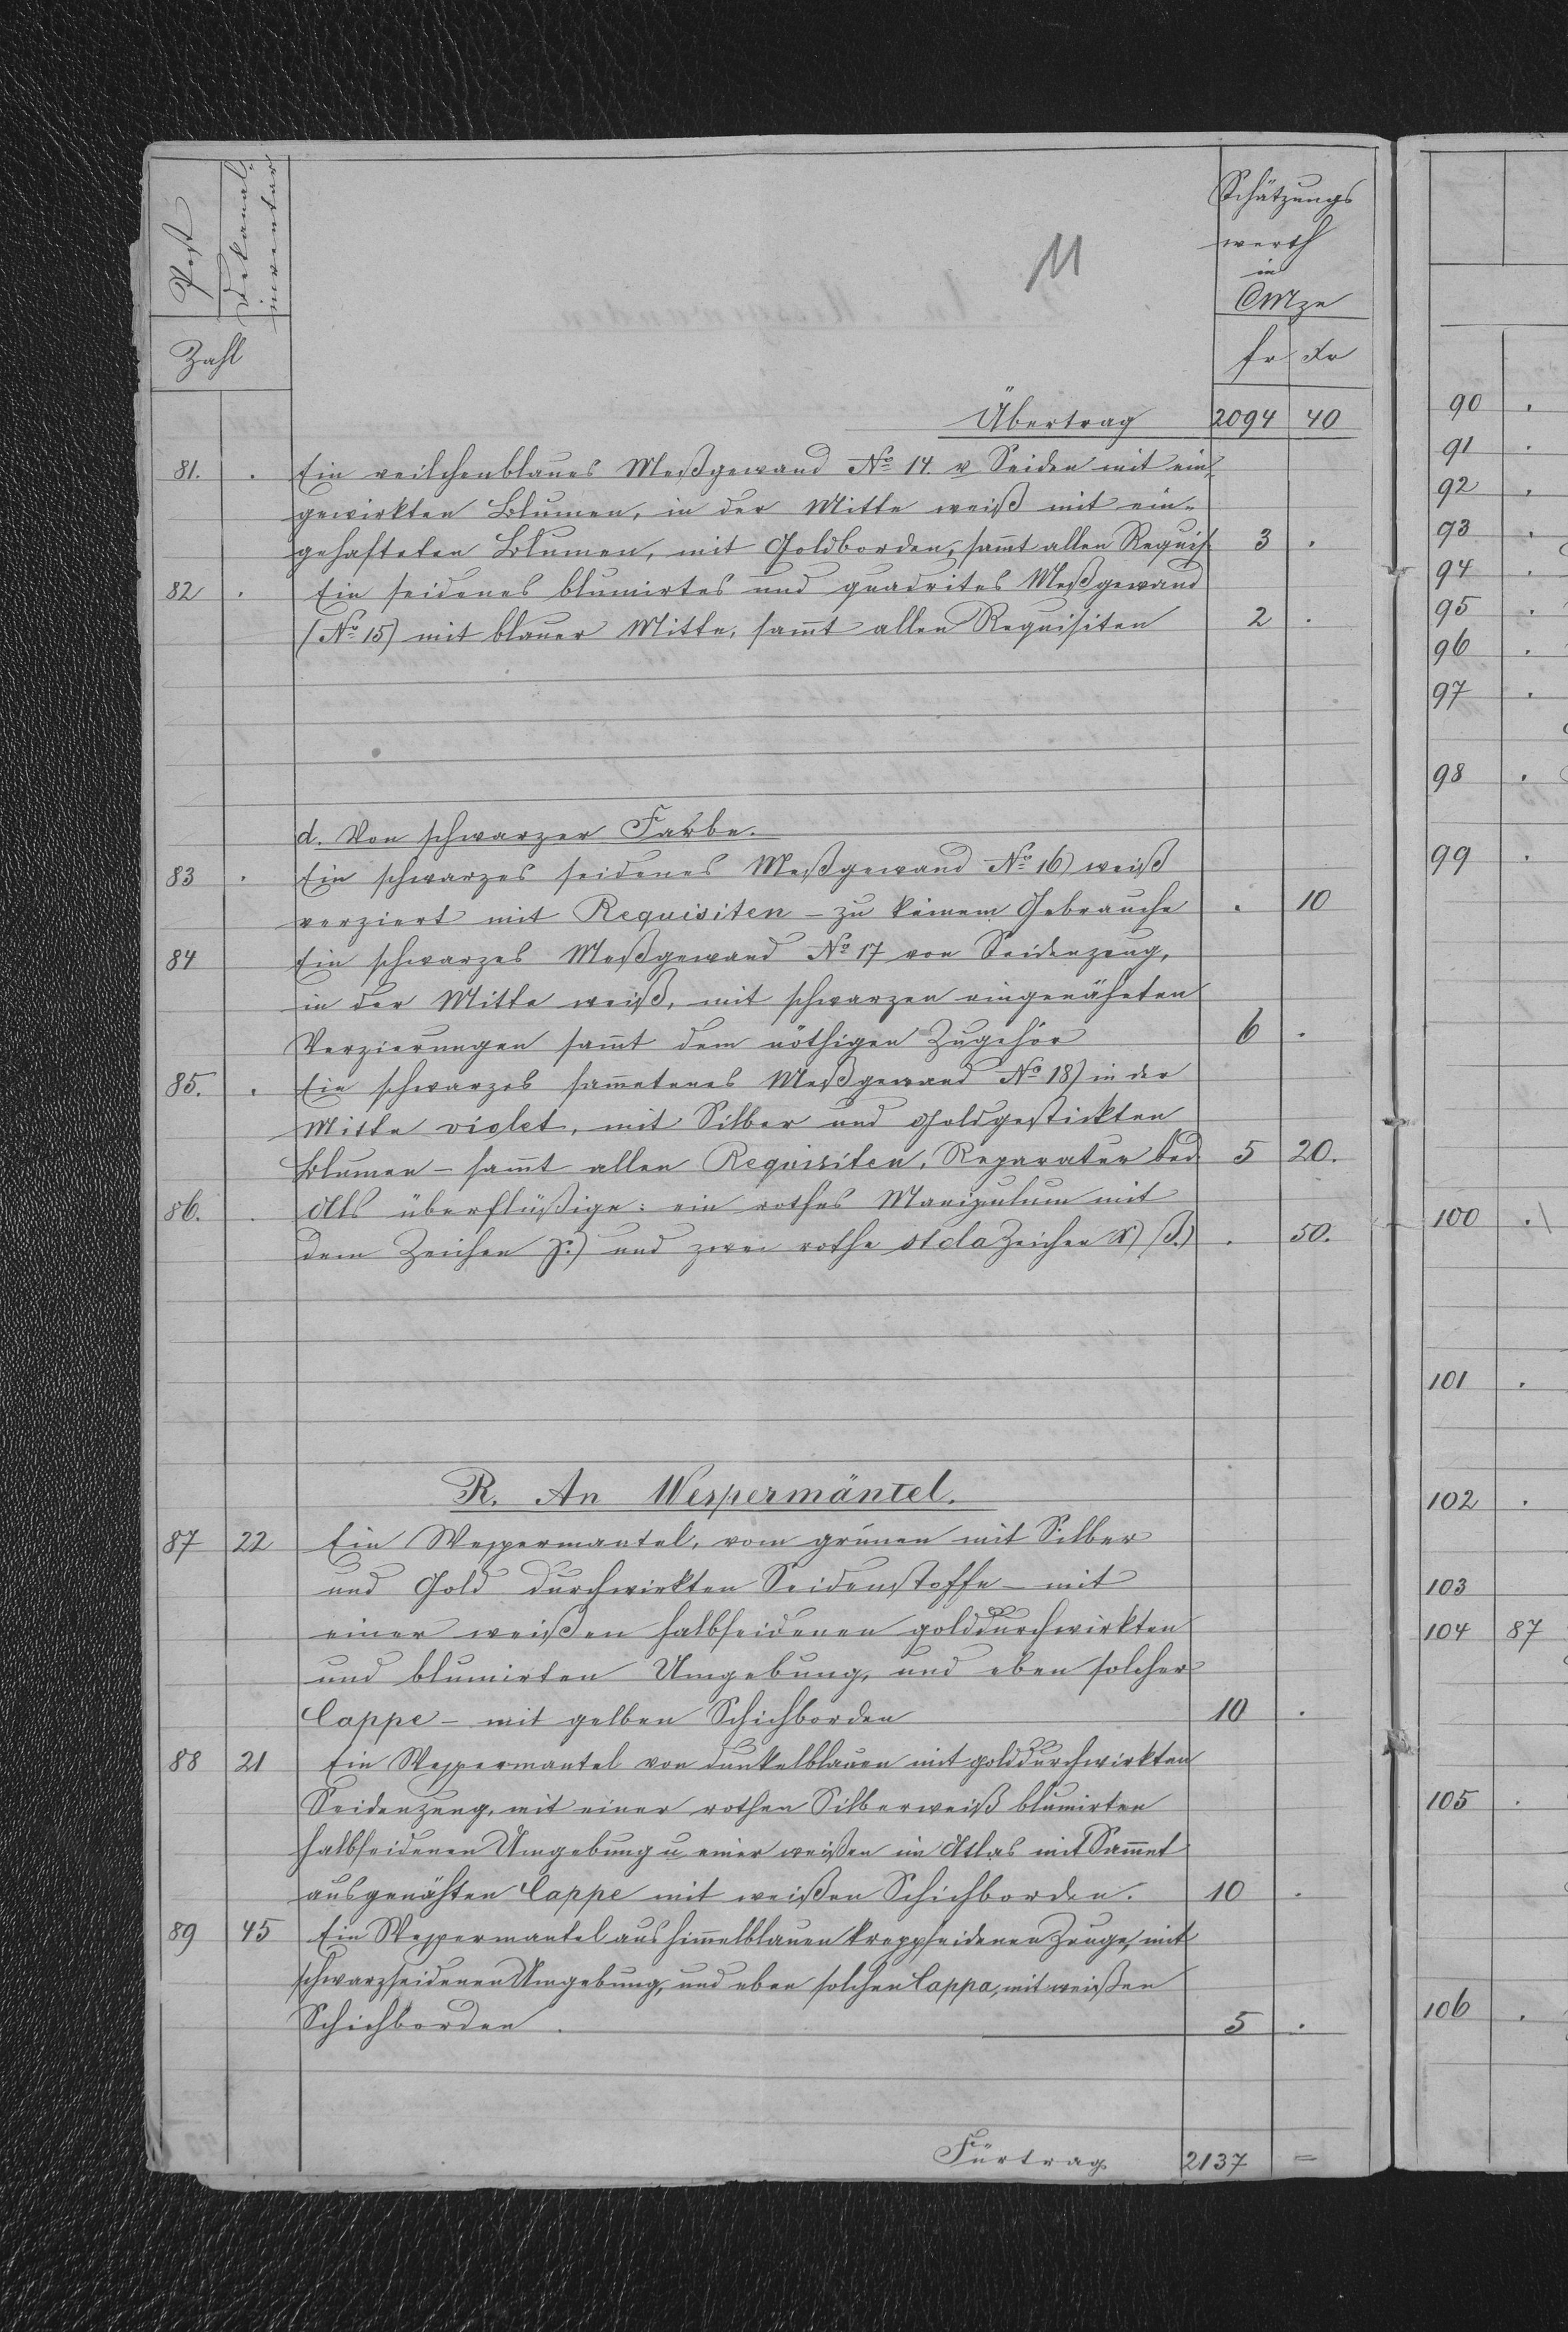 Post
Dekanal-
inventar
Zahl
11
Schätzungs
werth
in
CMze
fr xr
Übertrag 2094 40
81. . Ein veilchenblaues Meßgewand No 14. v Seiden mit ein-
gewirkten Blumen, in der Mitte weiß mit ein-
gehafteten Blumen, mit Goldborden, sam̅t allen Requis. 3 .
82 . Ein seidenes blumirtes und quadrites Meßgewand
(No 15) mit blauer Mitte, sam̅t allen Requisiten 2 .
d. Von schwarzer Farbe.
83 . Ein schwarzes seidenes Meßgewand No 16) weiß
verziert mit Requisiten – zu keinem Gebrauche . 10
84 Ein schwarzes Meßgewand No 17 von Seidenzeug,
in der Mitte weiß, mit schwarzen eingenähten
Verzierungen sam̅t dem nöthigen Zugehör 6 .
85. . Ein schwarzes sam̅etenes Meßgewand No 18) in der
Mitte violet, mit Silber und Goldgestickten
Blumen – sam̅t allen Requisiten, Reparatur bed 5 20.
86. . Als überflüßige: ein rothes Manipulum mit
dem Zeichen und zwei rothe stola Zeichen . 50.
R. An Wespermäntel.
87 22 Ein Wespermantel, vom grünen mit Silber
und Gold durchwirkten Seidenstoffe – mit
einer weißen halbseidenen golddurchwirkten
und blumirten Umgebung, und eben solcher
Cappe – mit gelben Schichborden 10 .
88 21 Ein Wespermantel von dunkelblauen mit golddurchwirkten
Seidenzeug, mit einer rothen Silberweiß blumirten
halbseidenen Umgebung u einer weißen im Atlas mit Sam̅et
ausgenähten Cappe mit weißen Schichborden. 10 .
89 45 Ein Wespermantel aus him̅elblauen kreppseidenen Zeuge, mit
schwarzseidenen Umgebung, und eben solchen Cappa, mit weißen
Schichborden . 5 .
Fürtrag 2137 =
90 .
91 .
92 .
93 .
94 .
95 .
96 .
97 .
98 .
99 .
100 .
101 .
102 .
103
104 87
105 .
106 .